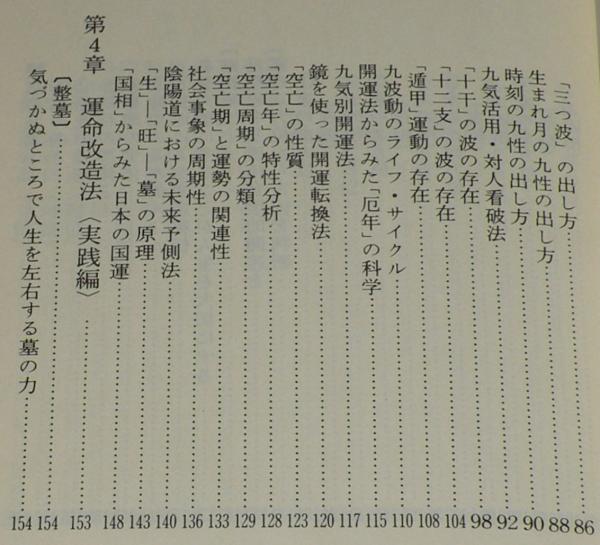 「三つ波」の出し方……86
生まれ月の九性の出し方……88
時刻の九性の出し方……90
九気活用・対人看破法……92
「十干」の波の存在……98
「十二支」の波の存在……104
「遁甲」運動の存在……108
九波動のライフ・サイクル……110
開運法からみた「厄年」の科学……115
九気別開運法……117
鏡を使った開運転換法……120
「空亡」の性質……123
「空亡年」の特性分析……128
「空亡周期」の分類……129
「空亡期」と運勢の関連性……133
社会事象の周期性……136
陰陽道における未来予側法……140
「生」―「旺」―「墓」の原理……143
「国相」からみた日本の国運……148
第4章 運命改造法〈実践編〉……153
〔整墓〕……154
気づかぬところで人生を左右する墓の力……154